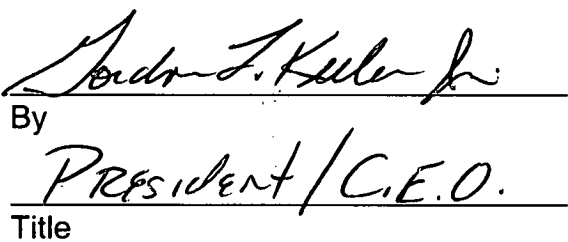 Gordon L. Keeler Jr.
By
President / C.E.O.
Title